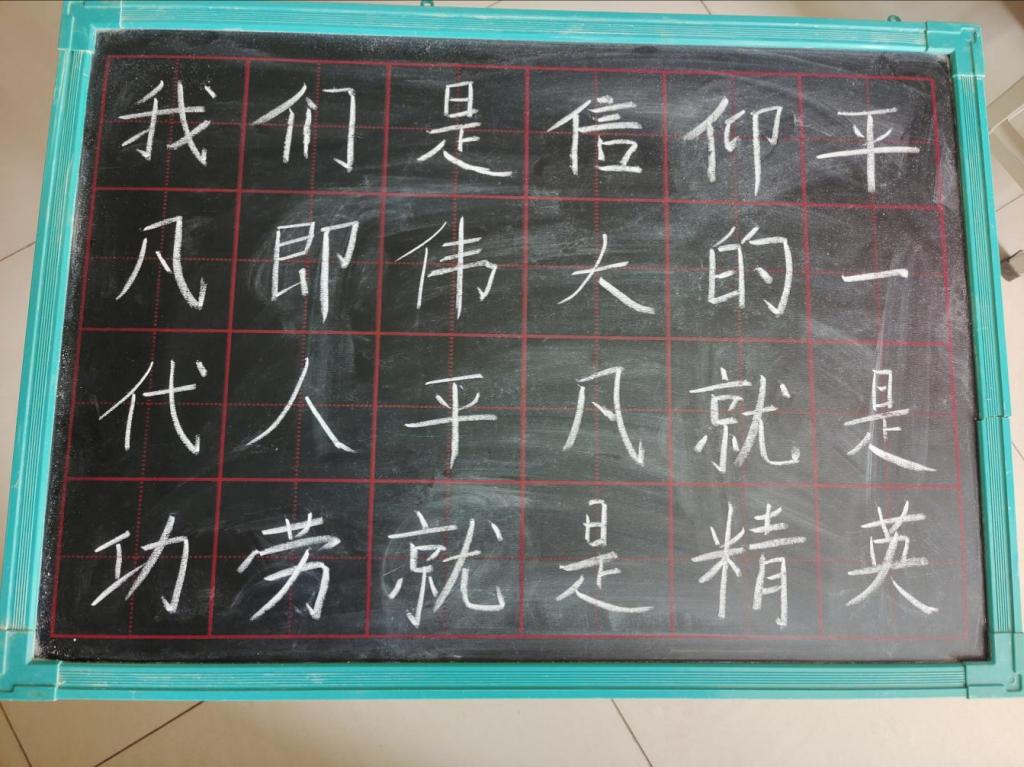 我们是信仰平
凡即伟大的一
代人平凡就是
功劳就是精英